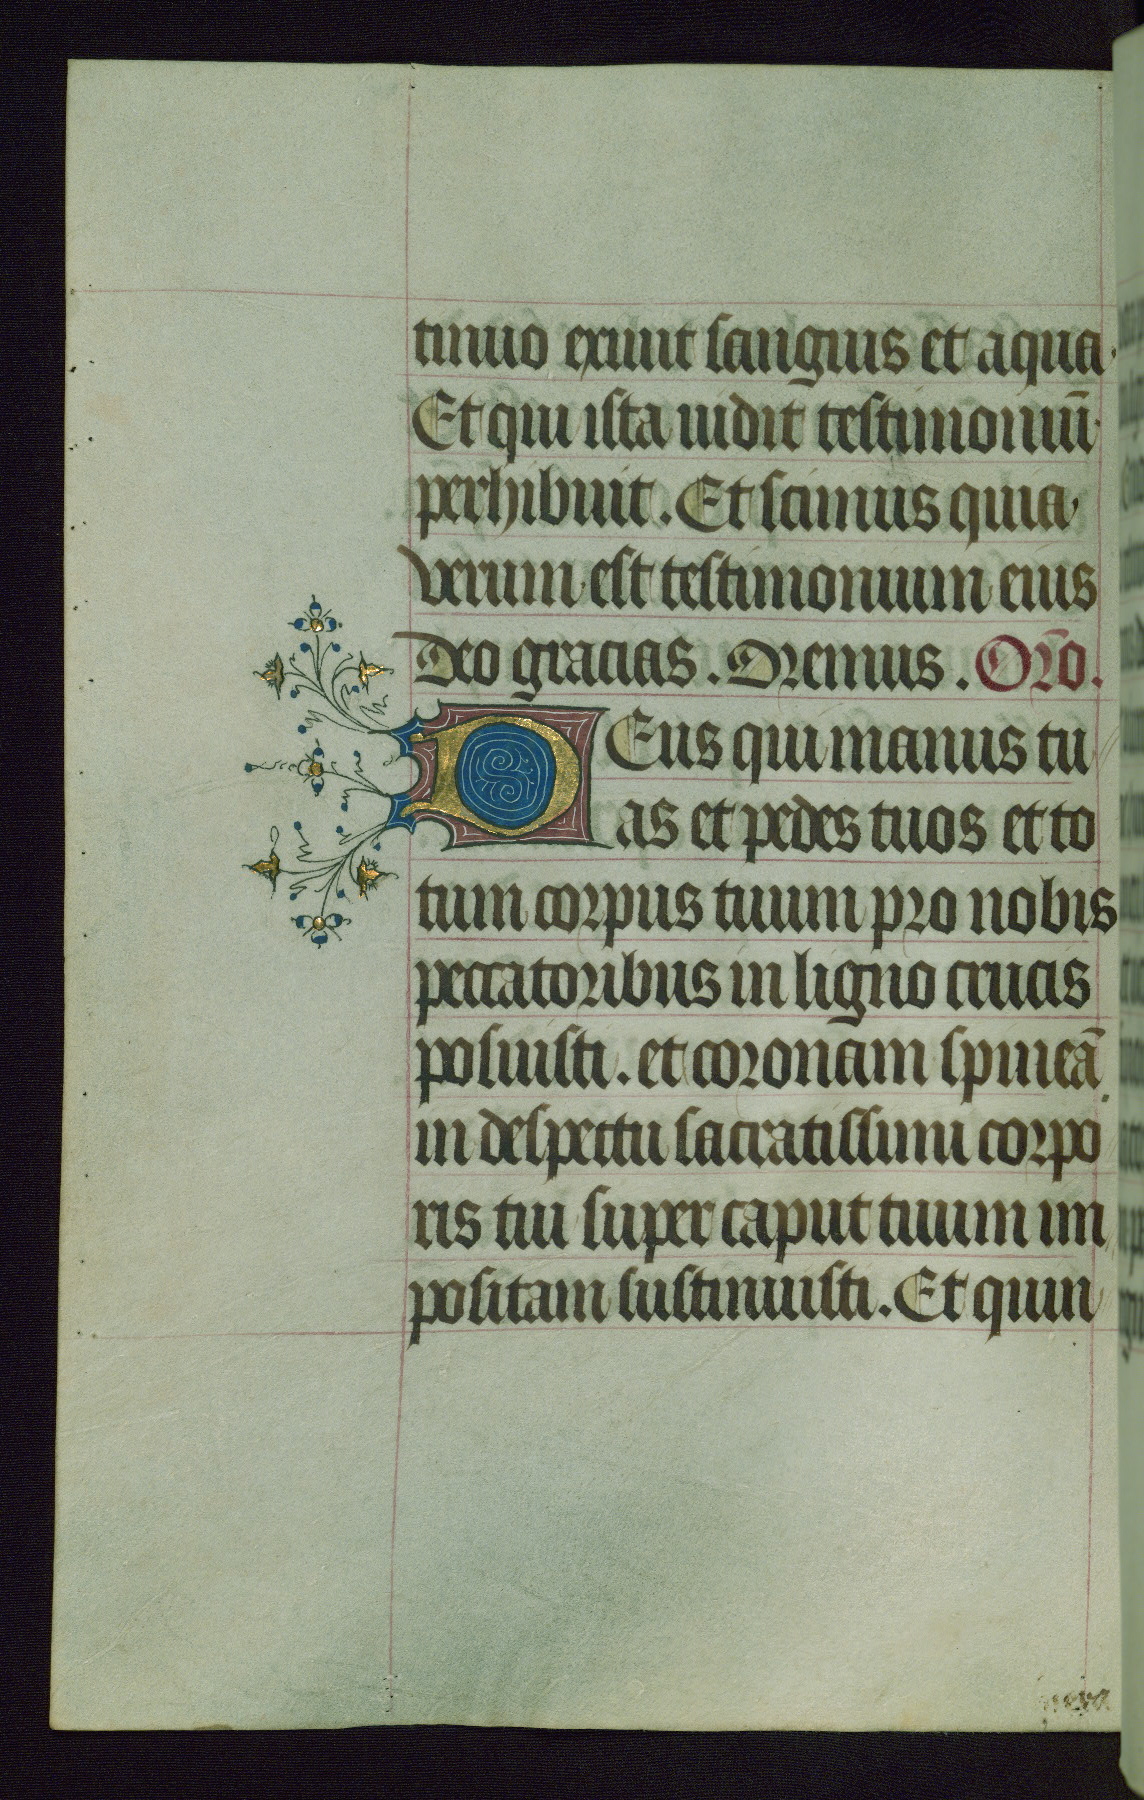 tinuo exiuit sanguis et aqua.
Et qui ista uidit testimoniū
perhibuit. Et scimus quia
verum est testimonium eius
Deo gracias. Oremus. Orō.
DEus qui manus tu
as et pedes tuos et to
tum corpus tuum pro nobis
peccatoribus in ligno crucis
posuisti. et coronam spineā
in despectu sacratissimi corpo
ris tui super caput tuum im
positam sustinuisti. Et quin